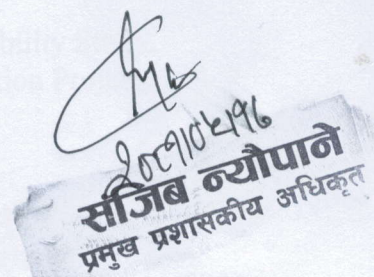 २०८१/०५/१६
सजिब न्यौपाने
प्रमुख प्रशासकीय अधिकृत